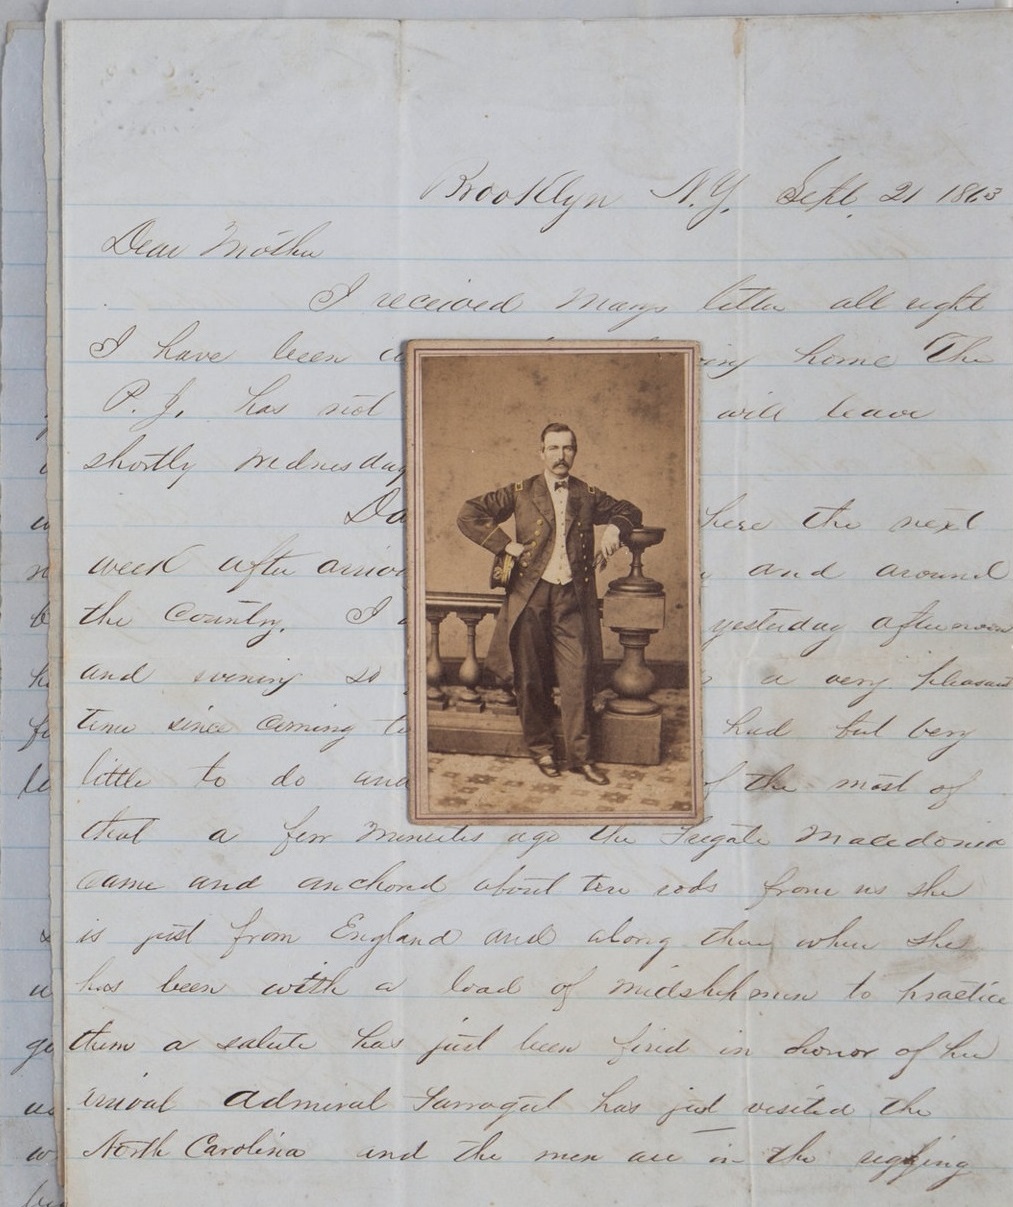 Brooklyn N.Y. Sept. 21 1863
Dear Mother
I received Marys letter all right
I have been home The
P. J. has not will leave
shortly Wednesday
here the next
week after and around
the Country. I yesterday afternoon
and evening so a very pleasant
time since coming to had but very
little to do and of the most of
that a few minutes ago the Fregate Macedonia
came and anchored about ten rods from us she
is just from England and along there where she
has been with a load of midshipmen to practice
them a salute has just been fired in honor of her
arrival Admiral Farragut has just visited the
North Carolina and the men are in the rigging